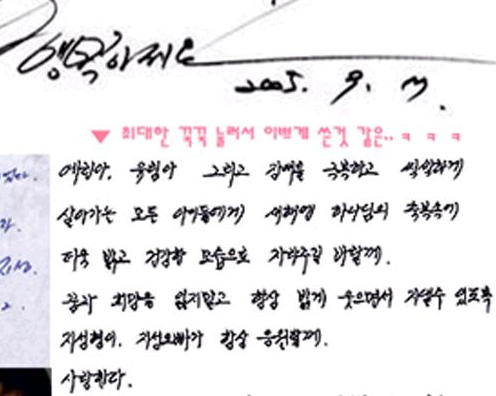 행복하세요
2005. 9. 7.
▼ 최대한 꾹꾹 눌러서 이쁘게 쓴것 같은.. ㅋ ㅋ ㅋ
예림아, 유림아 그리고 장애를 극복하고 씩씩하게
살아가는 모든 아이들에게 새해엔 하나님의 축복속에
더욱 밝고 건강한 모습으로 자라주길 바랄께.
꿈과 희망을 잃지말고 항상 밝게 웃으면서 자랄수 있도록
지성형이, 지성오빠가 항상 응원할께.
사랑한다.